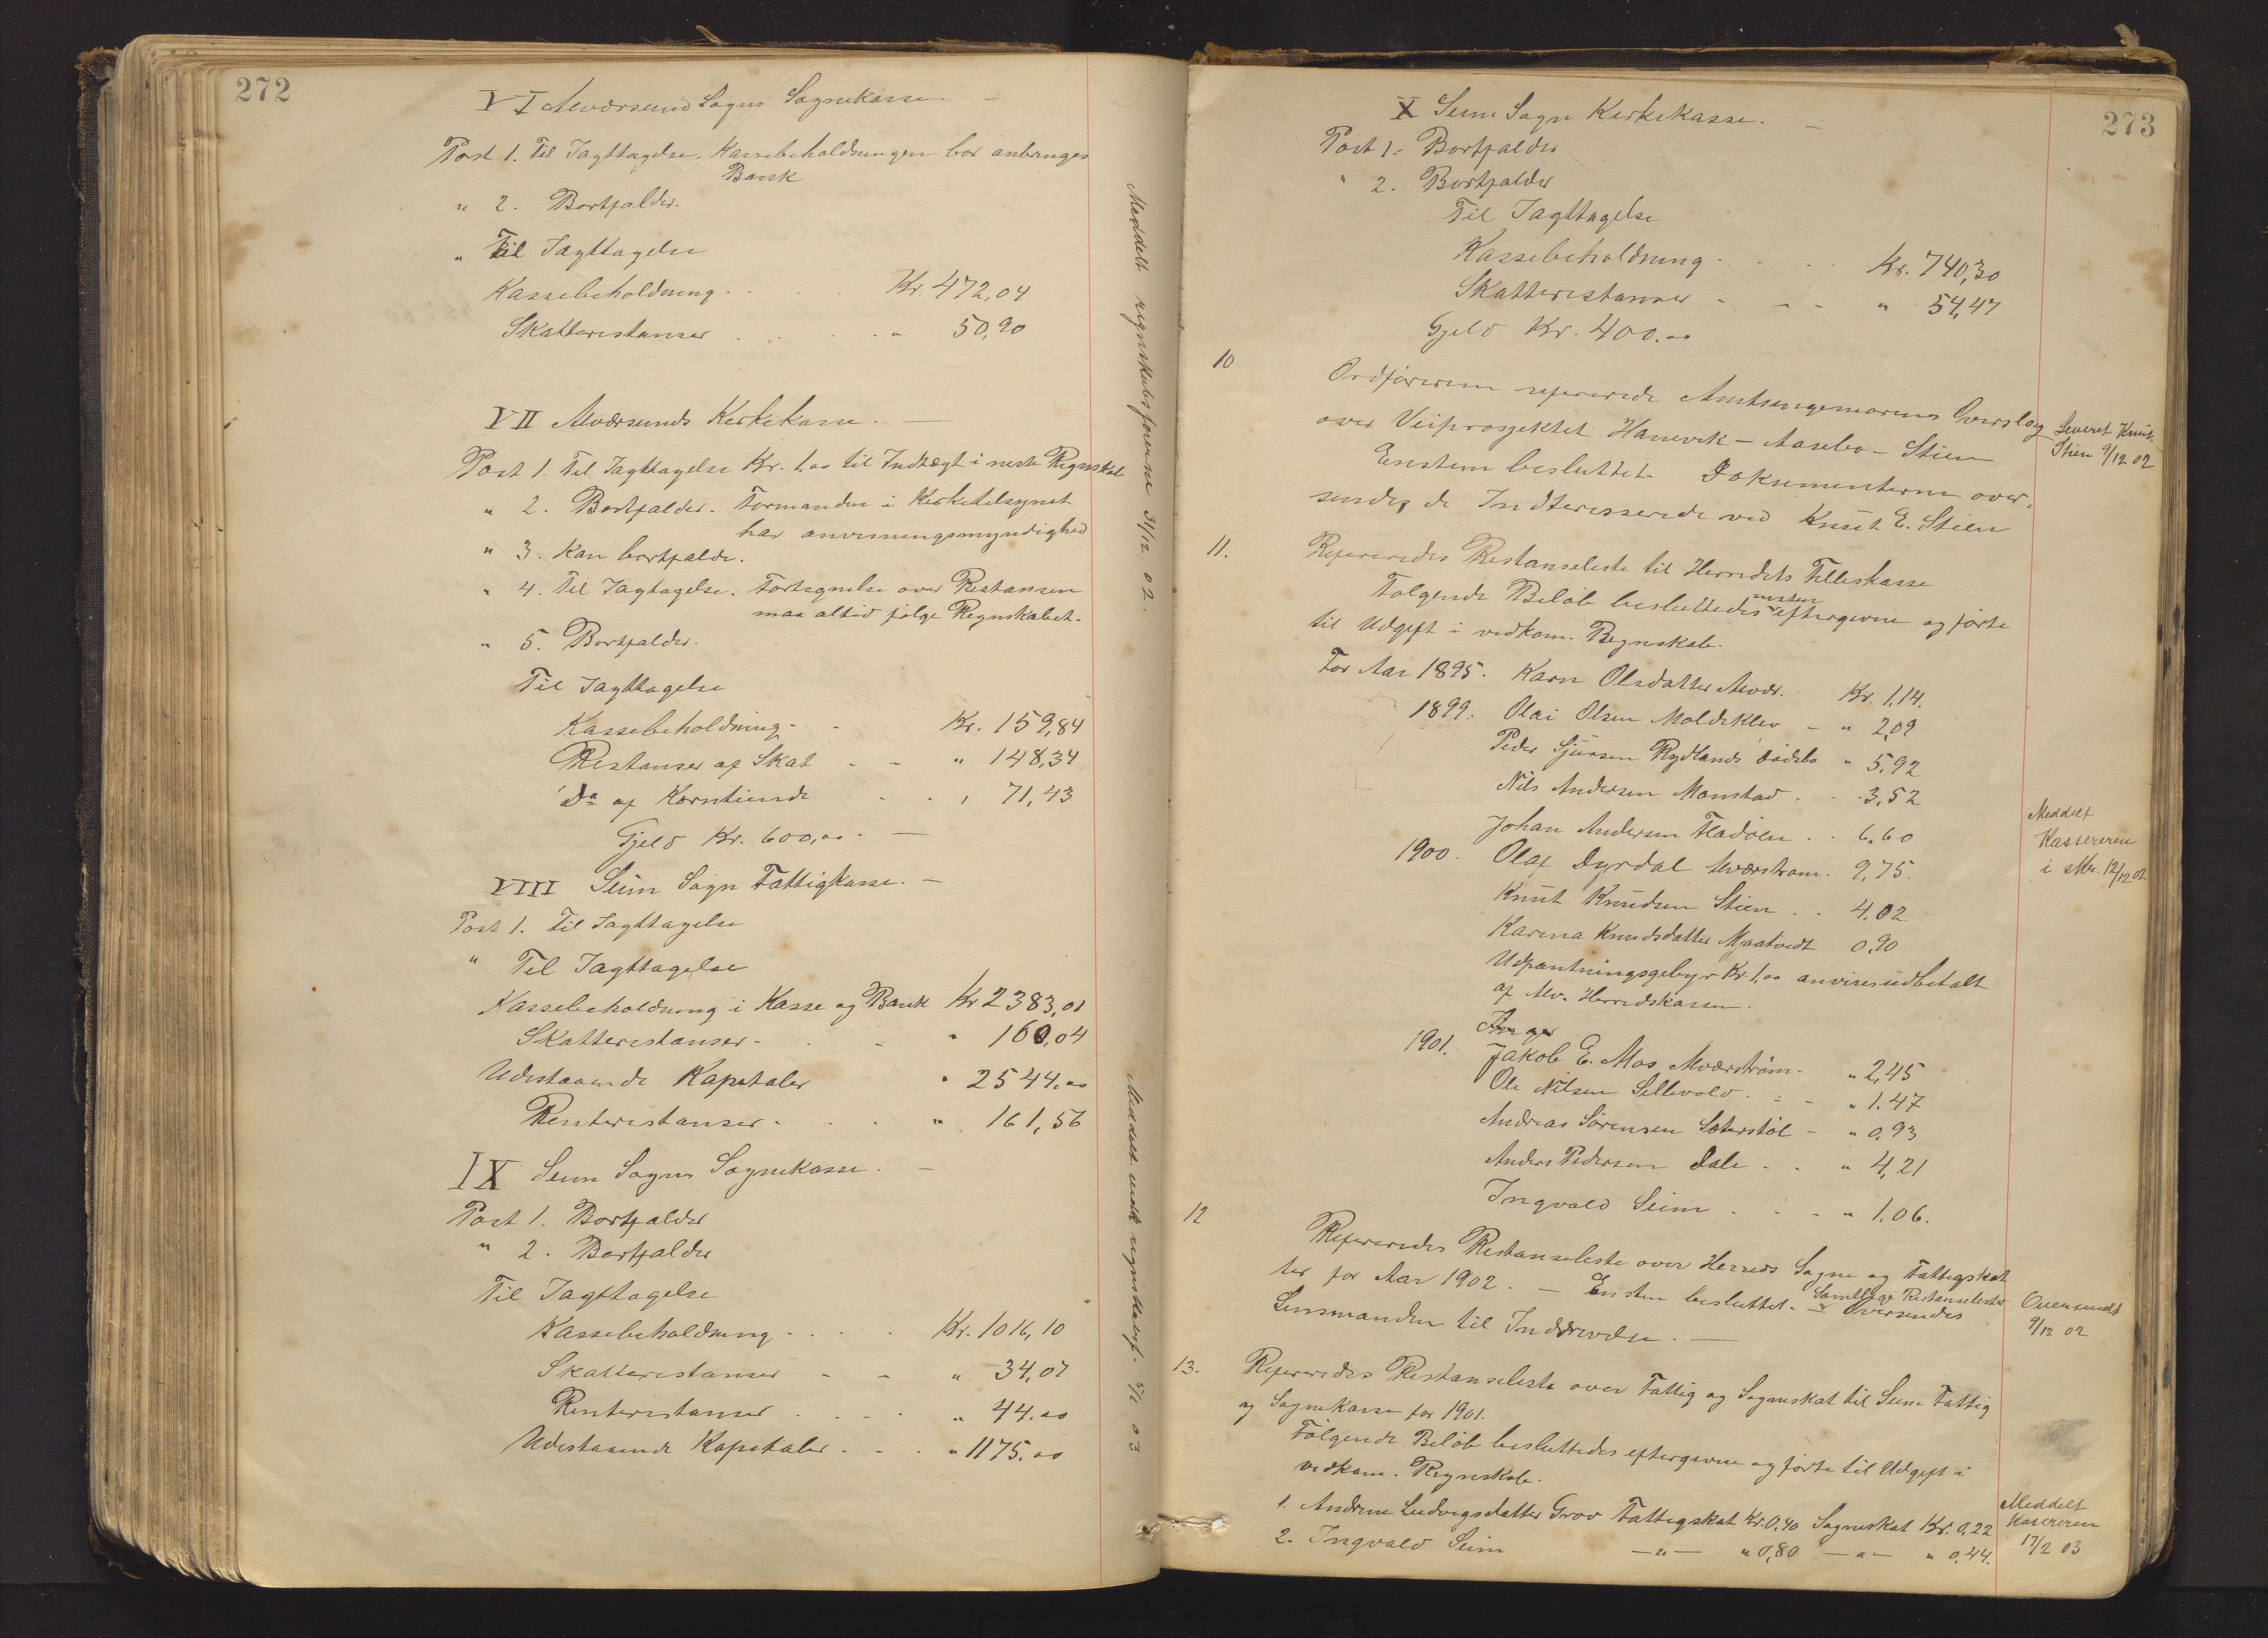 272
VI Alværsund Sogns Sognekasse. —
Post 1. Til Iagttagelse. Kassebeholdningen bør anbringes
Bank
" 2. Bortfalder.
" Til Iagttagelse
Kassebeholdning . . . Kr. 472,04
Skatterestanser . . . " 50,90
VII Alværsunds Kirkekasse. —
Post 1. Til Iagttagelse Kr. 1,00 til Indtægt i neste Regnskab
" 2. Bortfalder. Formanden i Kirketilsynet
har anvisningsmyndighed
" 3. Kan bortfalde.
" 4. Til Iagtagelse. Fortegnelse over Restansen
maa altid følge Regnskabet.
" 5. Bortfalder.
Til Iagttagelse
Kassebeholdning - - Kr. 159,84
Restanser af Skat - - " 148,34
Do af Korntiende - . " 71,43
Gjeld Kr. 600,00. —
VIII Seim Sogn Fattigkasse. —
Post 1. Til Iagttagelse
" Til Iagttagelse
Kassebeholdning i Kasse og Bank Kr 2383,01
Skatterestanser - . - " 160,04
Udestaaende Kapitaler " 2544.00
Renterestanser - . . " 161,56
IX Seim Sogns Sognekasse. —
Post 1. Bortfalder
" 2. Bortfalder
Til Iagttagelse
Kassebeholdning - . . . Kr. 1016,10
Skatterestanser - - " 34,07
Renterestanser . . - . " 44.00
Udestaaende Kapitaler - . . " 1175.00
Meddelt regnskabsførerne 31/12 02.
Meddelt vedk regnskabsf. 5/1 03
273
X Seim Sogn Kirkekasse. —
Post 1. Bortfalder
" 2. Bortfalder
Til Iagttagelse
Kassebeholdning - . . . Kr. 740,30
Skatterestanser - - - " 54,47
Gjeld Kr. 400.00
10
Ordføreren refererede Amtsingeniørens Overslag
over Veiprosjektet Hanevik - Aasebø - Stien
Enstem besluttet. Dokumenterne over-
sendes de Indteresserede ved Knut E. Stien
Leveret Knut
Stien 9/12 02
11.
Refereredes Restanseliste til Herredets Felleskasse
Følgende Beløb besluttedes ensten eftergivne og førte
til Udgift i vedkom. Regnskab.
For Aar 1895. Karn Olsdatter Alvær. Kr. 1,14.
1899. Olai Olsen Moldeklev - " 2,09
Peder Sjursen Rydlands dødsbo " 5,92
Nils Andersen Monstad . - . 3,52
Johan Andersen Fladøen . . 6,60
1900. Olaf Dyrdal Alværstrøm. 2,75.
Knut Knudsen Stien . . 4,02
Karina Knudsdatter Mjaatvedt 0,90
Udpantningsgebyr Kr. 1,00 anvises udbetalt
af Alv. Herredskassen.
Meddelt
Kassereren
i skr. 12/12 02
1901. Jakob E. Mos Alværstrøm - " 2,45
Ole Nilsen Sellevold . = - " 1.47
Andreas Sørensen Sæterstøl - " 0,93
Anders Pedersen Dale - . " 4,21
Ingvald Seim . . - . " 1,06.
12
Refereredes Restanseliste over Herreds Sogne og Fattigskat
ter for Aar 1902. — Enstem besluttet. Samtlige Restanselister Oversendes
Lensmanden til Inddrivelse. —
Oversendt
9/12 02
13.
Refereredes Restanseliste over Fattig og Sogneskat til Seim Fattig
og Sognekasse for 1901.
Følgende Beløb besluttedes eftergivne og førte til Udgift i
vedkom. Regnskab.
1. Andrine Ludvigsdatter Grov Fattigskat Kr. 0,40 Sogneskat Kr. 0,22
2. Ingvald Seim —"— " 0,80 —"— " 0,44.
Meddelt
Kassereren
17/2 03